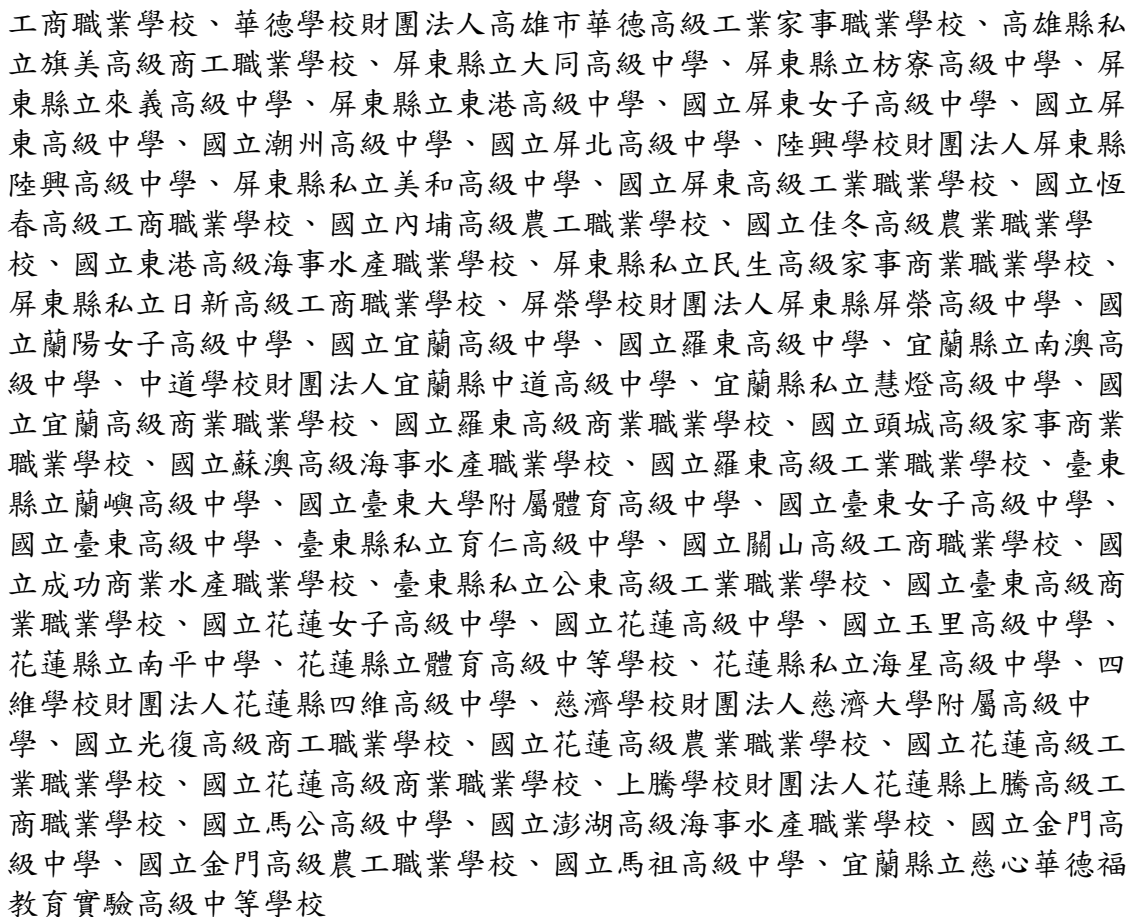 工商職業學校、華德學校財團法人高雄市華德高級工業家事職業學校、高雄縣私
立旗美高級商工職業學校、屏東縣立大同高級中學、屏東縣立枋寮高級中學、屏
東縣立來義高級中學、屏東縣立東港高級中學、國立屏東女子高級中學、國立屏
東高級中學、國立潮州高級中學、國立屏北高級中學、陸興學校財團法人屏東縣
陸興高級中學、屏東縣私立美和高級中學、國立屏東高級工業職業學校、國立恆
春高級工商職業學校、國立內埔高級農工職業學校、國立佳冬高級農業職業學
校、國立東港高級海事水產職業學校、屏東縣私立民生高級家事商業職業學校、
屏東縣私立日新高級工商職業學校、屏榮學校財團法人屏東縣屏榮高級中學、國
立蘭陽女子高級中學、國立宜蘭高級中學、國立羅東高級中學、宜蘭縣立南澳高
級中學、中道學校財團法人宜蘭縣中道高級中學、宜蘭縣私立慧燈高級中學、國
立宜蘭高級商業職業學校、國立羅東高級商業職業學校、國立頭城高級家事商業
職業學校、國立蘇澳高級海事水產職業學校、國立羅東高級工業職業學校、臺東
縣立蘭嶼高級中學、國立臺東大學附屬體育高級中學、國立臺東女子高級中學、
國立臺東高級中學、臺東縣私立育仁高級中學、國立關山高級工商職業學校、國
立成功商業水產職業學校、臺東縣私立公東高級工業職業學校、國立臺東高級商
業職業學校、國立花蓮女子高級中學、國立花蓮高級中學、國立玉里高級中學、
花蓮縣立南平中學、花蓮縣立體育高級中等學校、花蓮縣私立海星高級中學、四
維學校財團法人花蓮縣四維高級中學、慈濟學校財團法人慈濟大學附屬高級中
學、國立光復高級商工職業學校、國立花蓮高級農業職業學校、國立花蓮高級工
業職業學校、國立花蓮高級商業職業學校、上騰學校財團法人花蓮縣上騰高級工
商職業學校、國立馬公高級中學、國立澎湖高級海事水產職業學校、國立金門高
級中學、國立金門高級農工職業學校、國立馬祖高級中學、宜蘭縣立慈心華德福
教育實驗高級中等學校